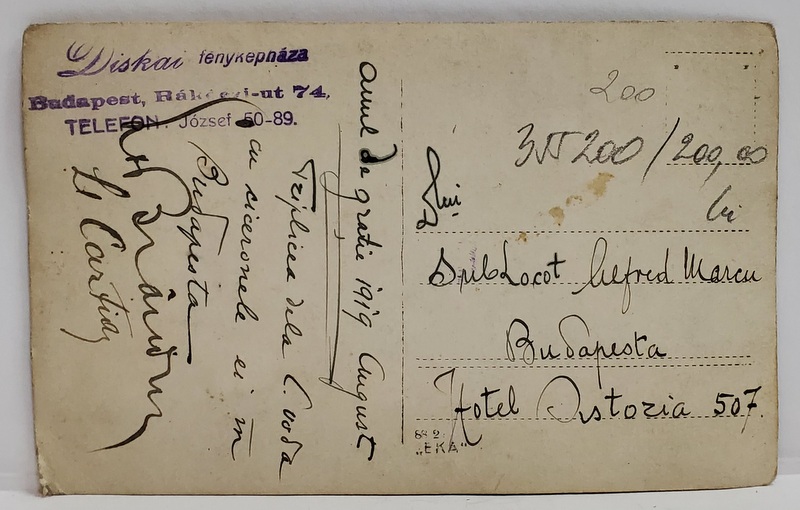 Diskai fényképháza
Budapest, Rákóczi-ut 74,
TELEFON: József 50-89.
Anul de gratie 1919 August
Triplicea dela C. Voda
cu ciceronele ei in
Budapesta
Lt
200
200/200,00
lei
Dlui
SubLocot Alfred Marcu
Budapesta
Hotel Astoria 507.
„EKA"